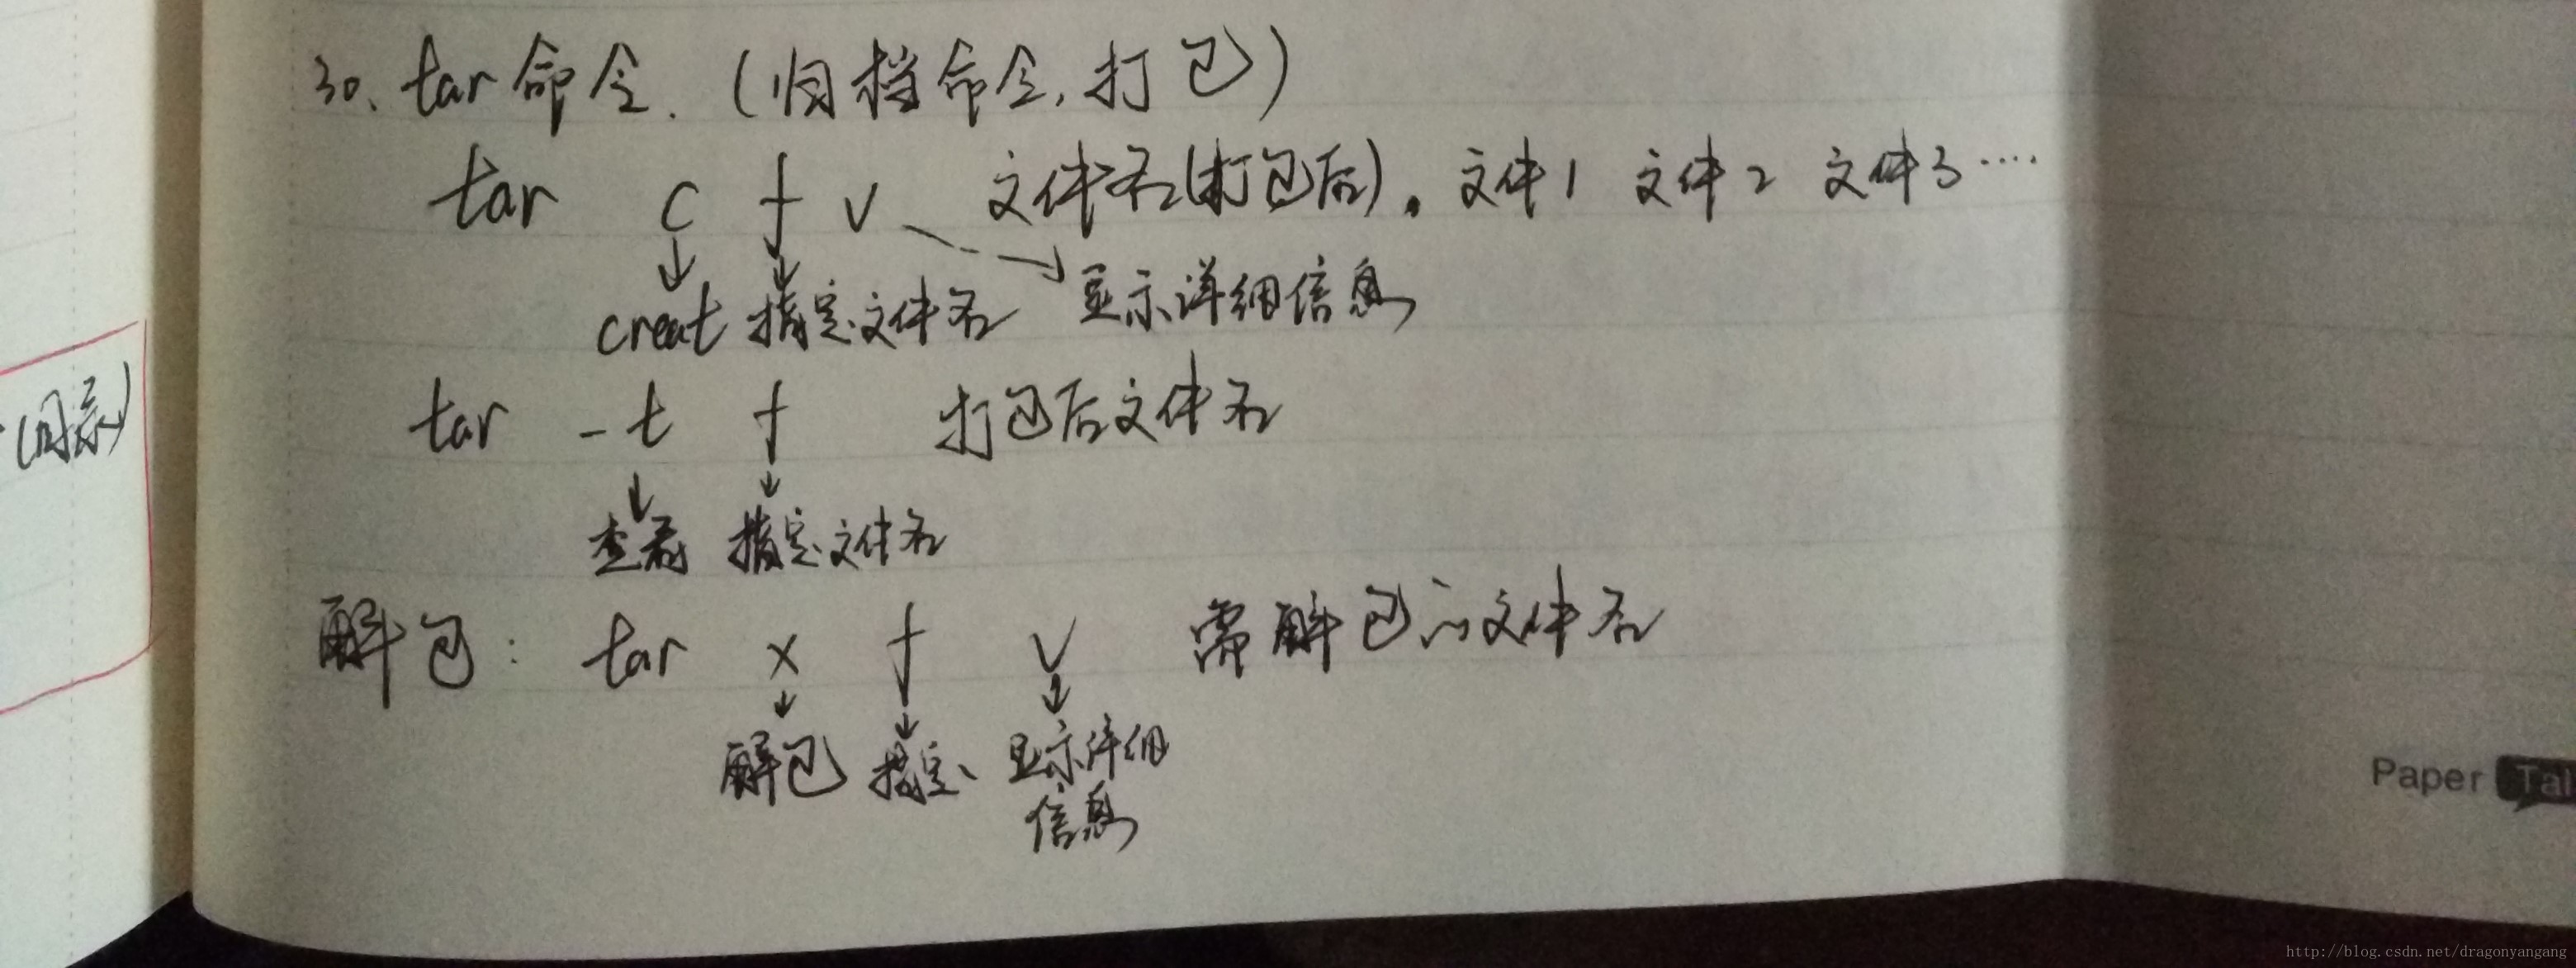 30、tar命令.(归档命令,打包)
tar c f v 文件名(打包后). 文件1 文件2 文件3····
creat 指定文件名 显示详细信息
tar -t f 打包后文件名
查看 指定文件名
解包: tar x f v 需解包的文件名
解包 指定 显示详细
信息
Paper
http://blog.csdn.net/dragonyangang